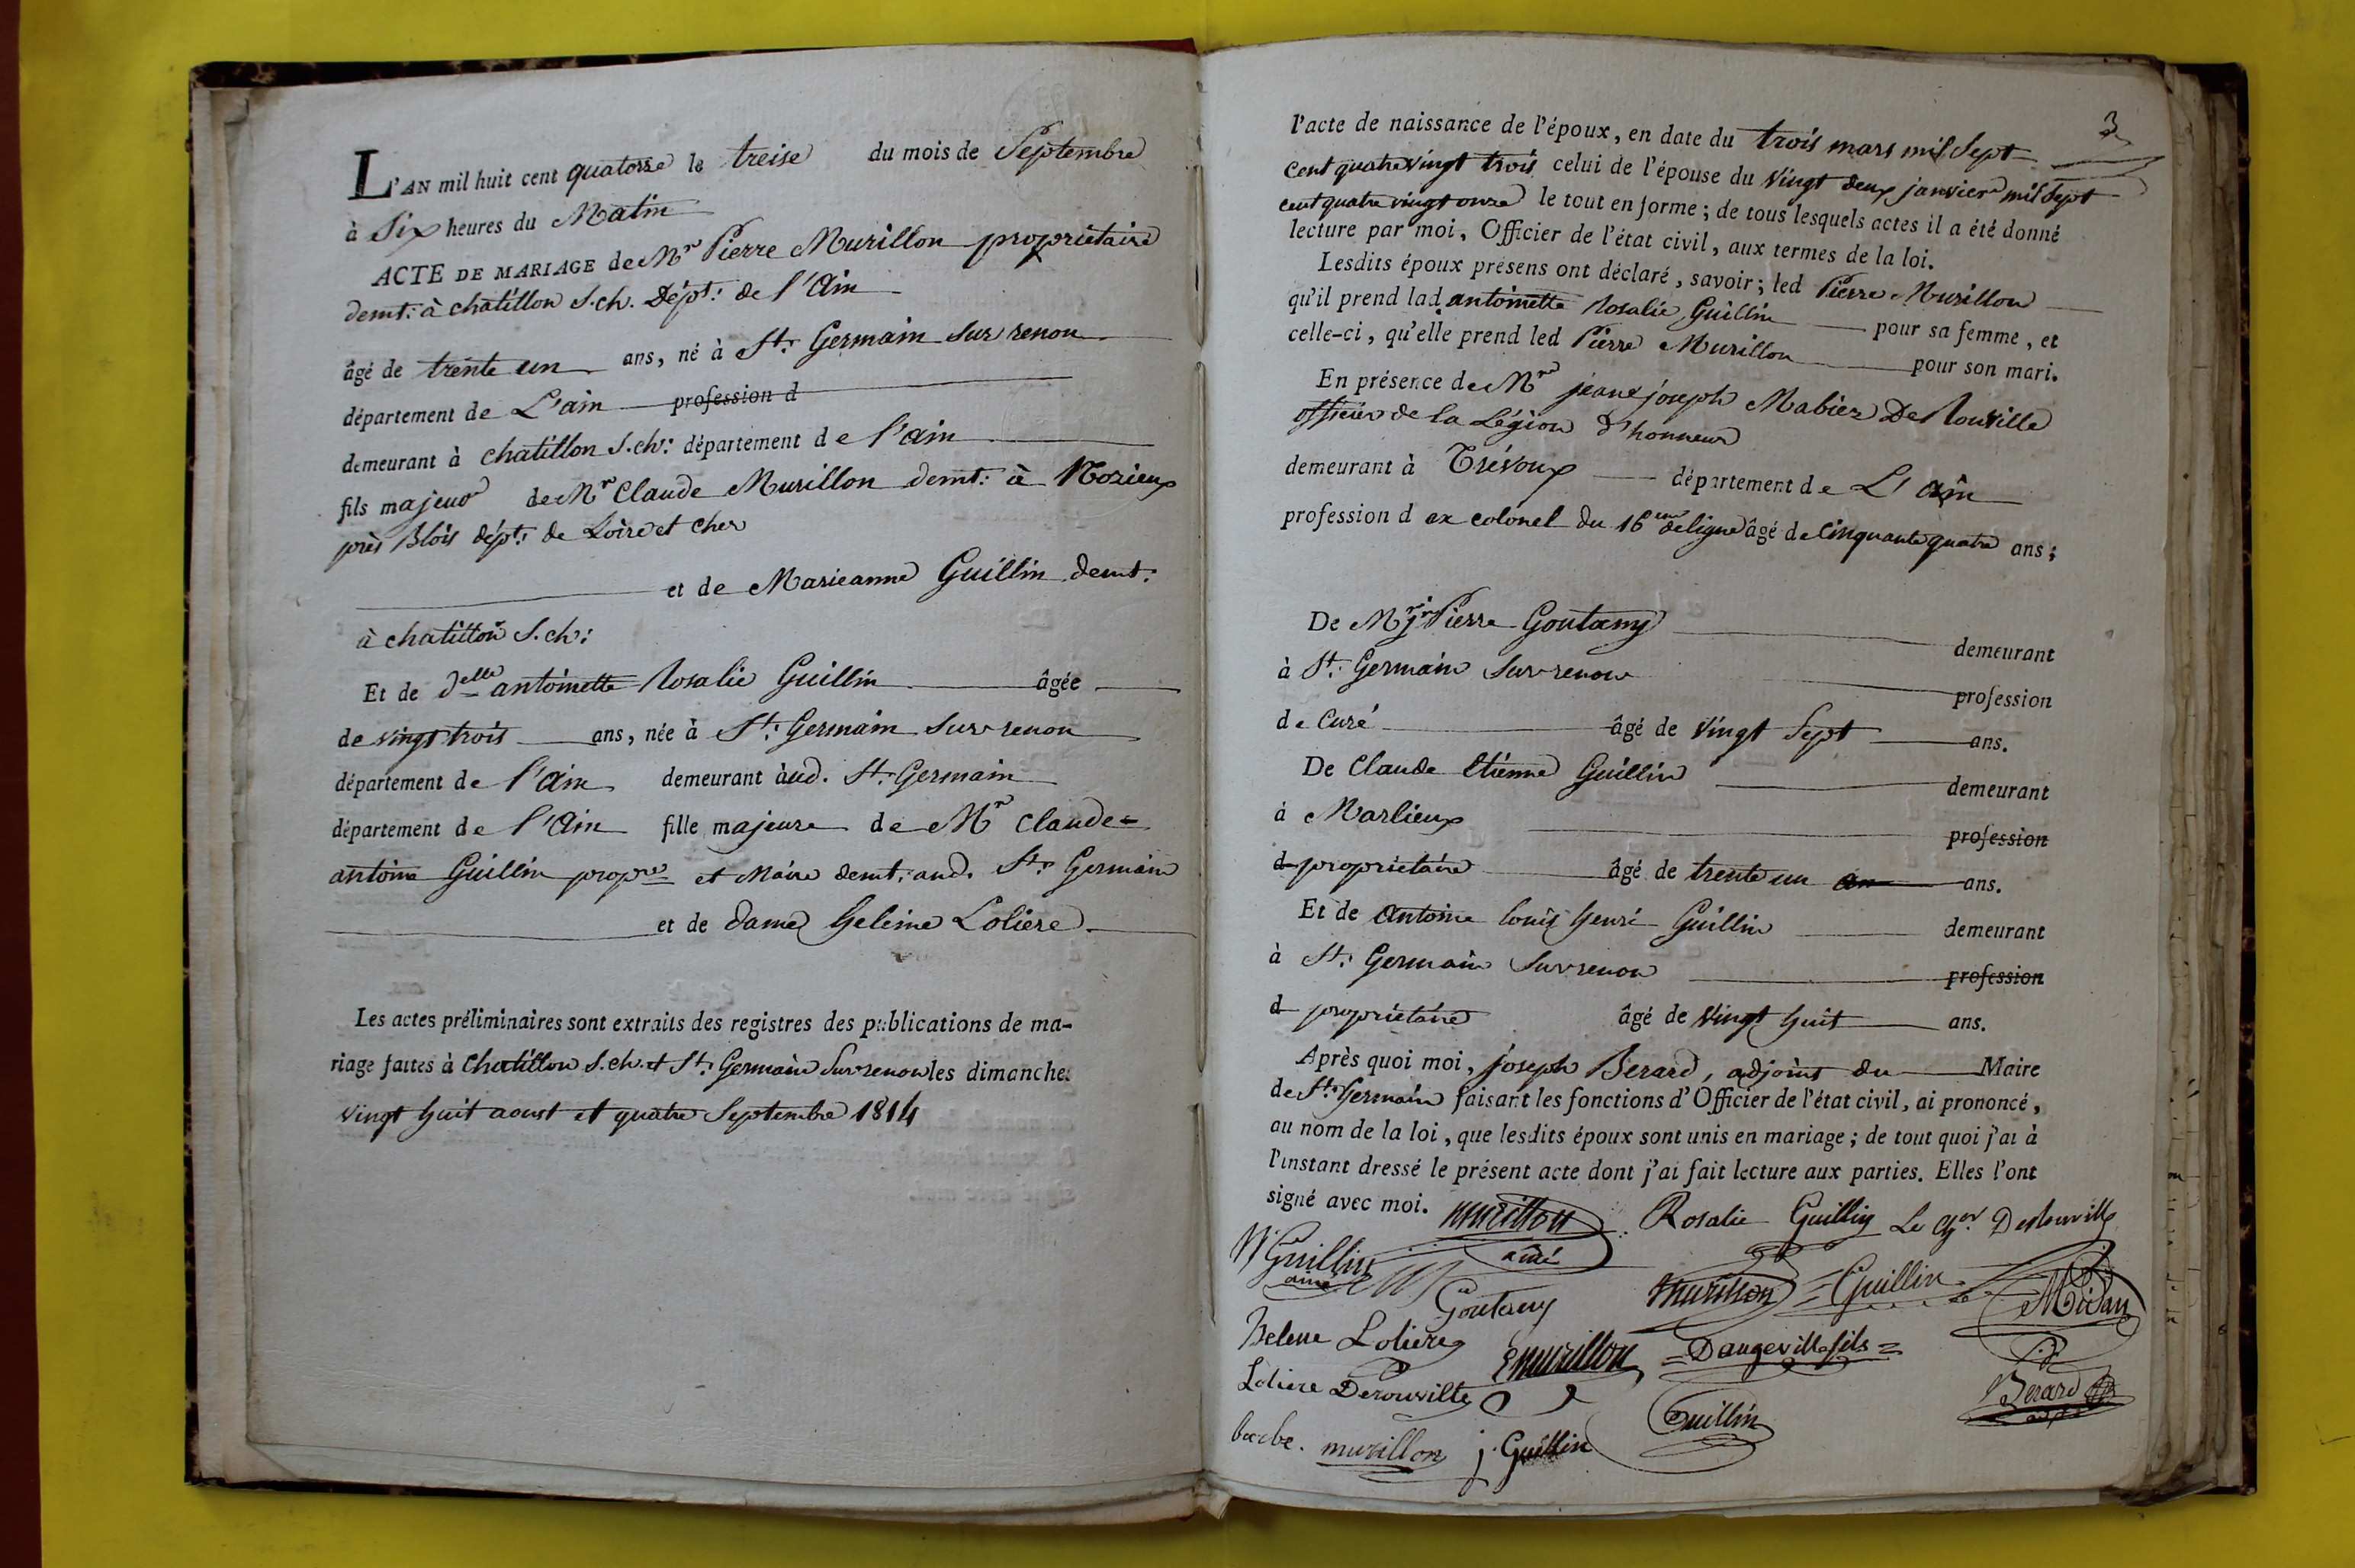 L'AN mil huit cent quatorse le treise du mois de Septembre
à Six heures du Matin
ACTE DE MARIAGE de Mr Pierre Murillon proprietaire
demt: à chatillon S.ch. Dépt: de l'Ain
âgé de trente un ans, né à St. Germain Sur renon
département de L'ain profession d
demeurant à chatillon S.ch: département de l'ain
fils majeur de Mr Claude Murillon demt: à Nozieux
près Blois dépt: de Loire et cher
et de Marieanne Guillin demt:
à chatillon S.ch:
Et de delle antoinette Rosalie Guillin âgée
de vingt trois ans, née à St: Germain Sur renon
département de l'Ain demeurant àud. St. Germain
département de l'Ain fille majeure de Mr Claude=
antoine Guillin propre et Maire demt: aud. St. Germain
et de dame heleine Loliere
Les actes préliminaires sont extraits des registres des publications de ma-
riage faites à Chatillon S.ch. et St: Germain Sur renon les dimanches
vingt huit aoust et quatre Septembre 1814
3
l'acte de naissance de l'époux, en date du trois mars mil Sept
cent quatre vingt trois celui de l'épouse du vingt deux janvier mil Sept
cent quatre vingt onze le tout en forme ; de tous lesquels actes il a été donné
lecture par moi, Officier de l'état civil, aux termes de la loi.
Lesdits époux présens ont déclaré, savoir ; led Pierre Murillon
qu'il prend lad antoinette Rosalie Guillin pour sa femme, et
celle-ci, qu'elle prend led Pierre Murillon pour son mari.
En présence de Mr jean joseph Mabiez De Rouville
officier de la Légion d'honneur
demeurant à Trévoux département de L'ain
profession d ex colonel du 16eme de ligne âgé de Cinquante quatre ans ;
De Mr j Pierre Goutamy demeurant
à St: Germain Sur renon profession
de Curé âgé de vingt Sept ans.
De Claude Etienne Guillin demeurant
à Marlieux profession
d proprietaire âgé de trente un an ans.
Et de Antoine louis henri Guillin demeurant
à St: Germain Sur renon profession
d proprietaire âgé de Vingt huit ans.
Après quoi moi, joseph Berard, adjoint du Maire
de St. Germain faisant les fonctions d'Officier de l'état civil, ai prononcé,
au nom de la loi, que lesdits époux sont unis en mariage ; de tout quoi j'ai à
l'instant dressé le présent acte dont j'ai fait lecture aux parties. Elles l'ont
signé avec moi. murillon Rosalie Guillin Le Derouville
Guillin ainé
ainé Goutamy murillon Guillin
Helene Loliere Murillon Dangeville fils
Loliere Derouville Guillin Berard
murillon j. Guillin